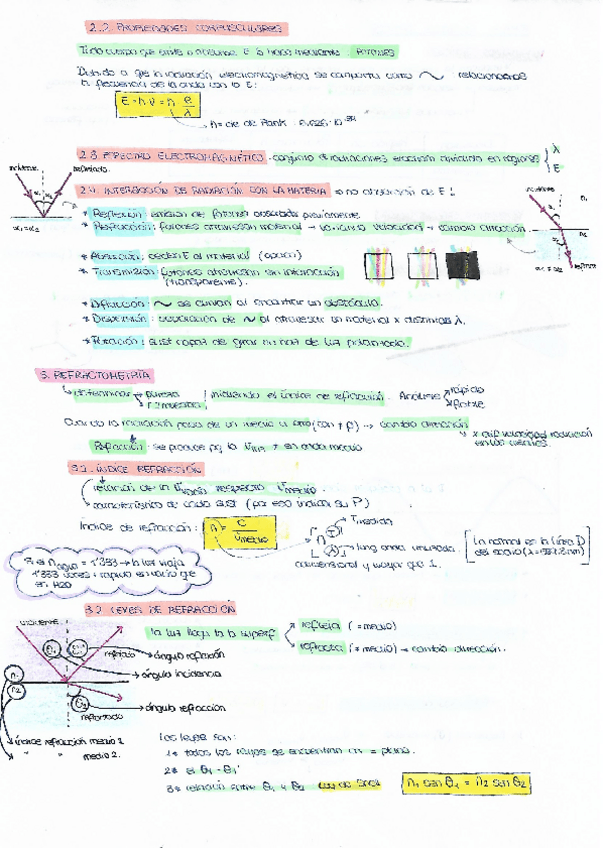 2.2. PROPIEDADES CORPUSCULARES
Todo cuerpo que emite o absorbe E lo hace mediante: FOTONES
Debido a que la radiación electromagnética se comporta como ~ relacionamos
la frecuencia de la onda con la E:
E = h·ν = h · c/λ
h = cte de Plank 6.626·10⁻³⁴
2.3. ESPECTRO ELECTROMAGNÉTICO - conjunto de radiaciones dividido en regiones { λ E
2.4. INTERACCIÓN DE RADIACIÓN CON LA MATERIA
incidente reflejado
α₁ = α₂
* Reflexión: emisión de fotones absorbida previamente.
* Refracción: fotones atraviesan material → velocidad → cambio dirección.
* Absorción: ceden E al material (opaco)
* Transmisión: fotones atraviesan sin interacción
(transparente).
incidente
n₁
n₂
* Difracción: ~ se curvan al encontrar un obstáculo.
* Dispersión: separación de ~ al atravesar un material x distintas λ.
* Rotación: sust capaz de girar de luz polarizada.
3. REFRACTOMETRÍA
determinar pureza
midiendo el índice de refracción. Análisis rápido
fiable
Cuando la radiación pasa de un medio a otro → cambia dirección
x dif velocidad radiación
en los medios.
Refracción - se produce pq la en cada medio
3.1. ÍNDICE REFRACCIÓN
relación de la respecto v medio.
característico de cada sust (por eso indica su P)
Índice de refracción: n = c / v medio
T medida
long onda utilizada.
adimensional y mayor que 1.
[ La normal es la línea D
del sodio ]
Si el n agua = 1'333 → la luz viaja
1'333 veces + rápido en vacío que
en H2O
3.2. LEYES DE REFRACCIÓN
INCIDENTE
reflejado
la luz llega a la superf
refleja (= medio)
refracta (≠ medio) → cambia dirección.
ángulo reflexión
ángulo incidencia
n₁
n₂
θ₂
refractado
ángulo refracción
índice refracción medio 1
" " medio 2.
Las leyes son:
1ª todos los rayos se encuentran en = plano.
2ª el θ₁ = θ₁'
3ª relación entre θ₁ y θ₂ Ley de Snell n₁ sen θ₁ = n₂ sen θ₂